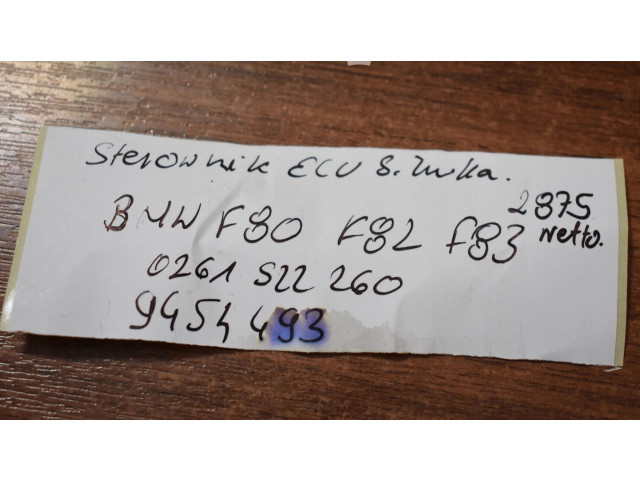 Sterownik ECU S.lnika.
2875
BMW F80 F82 F83 netto.
0261 S22 260
9454493